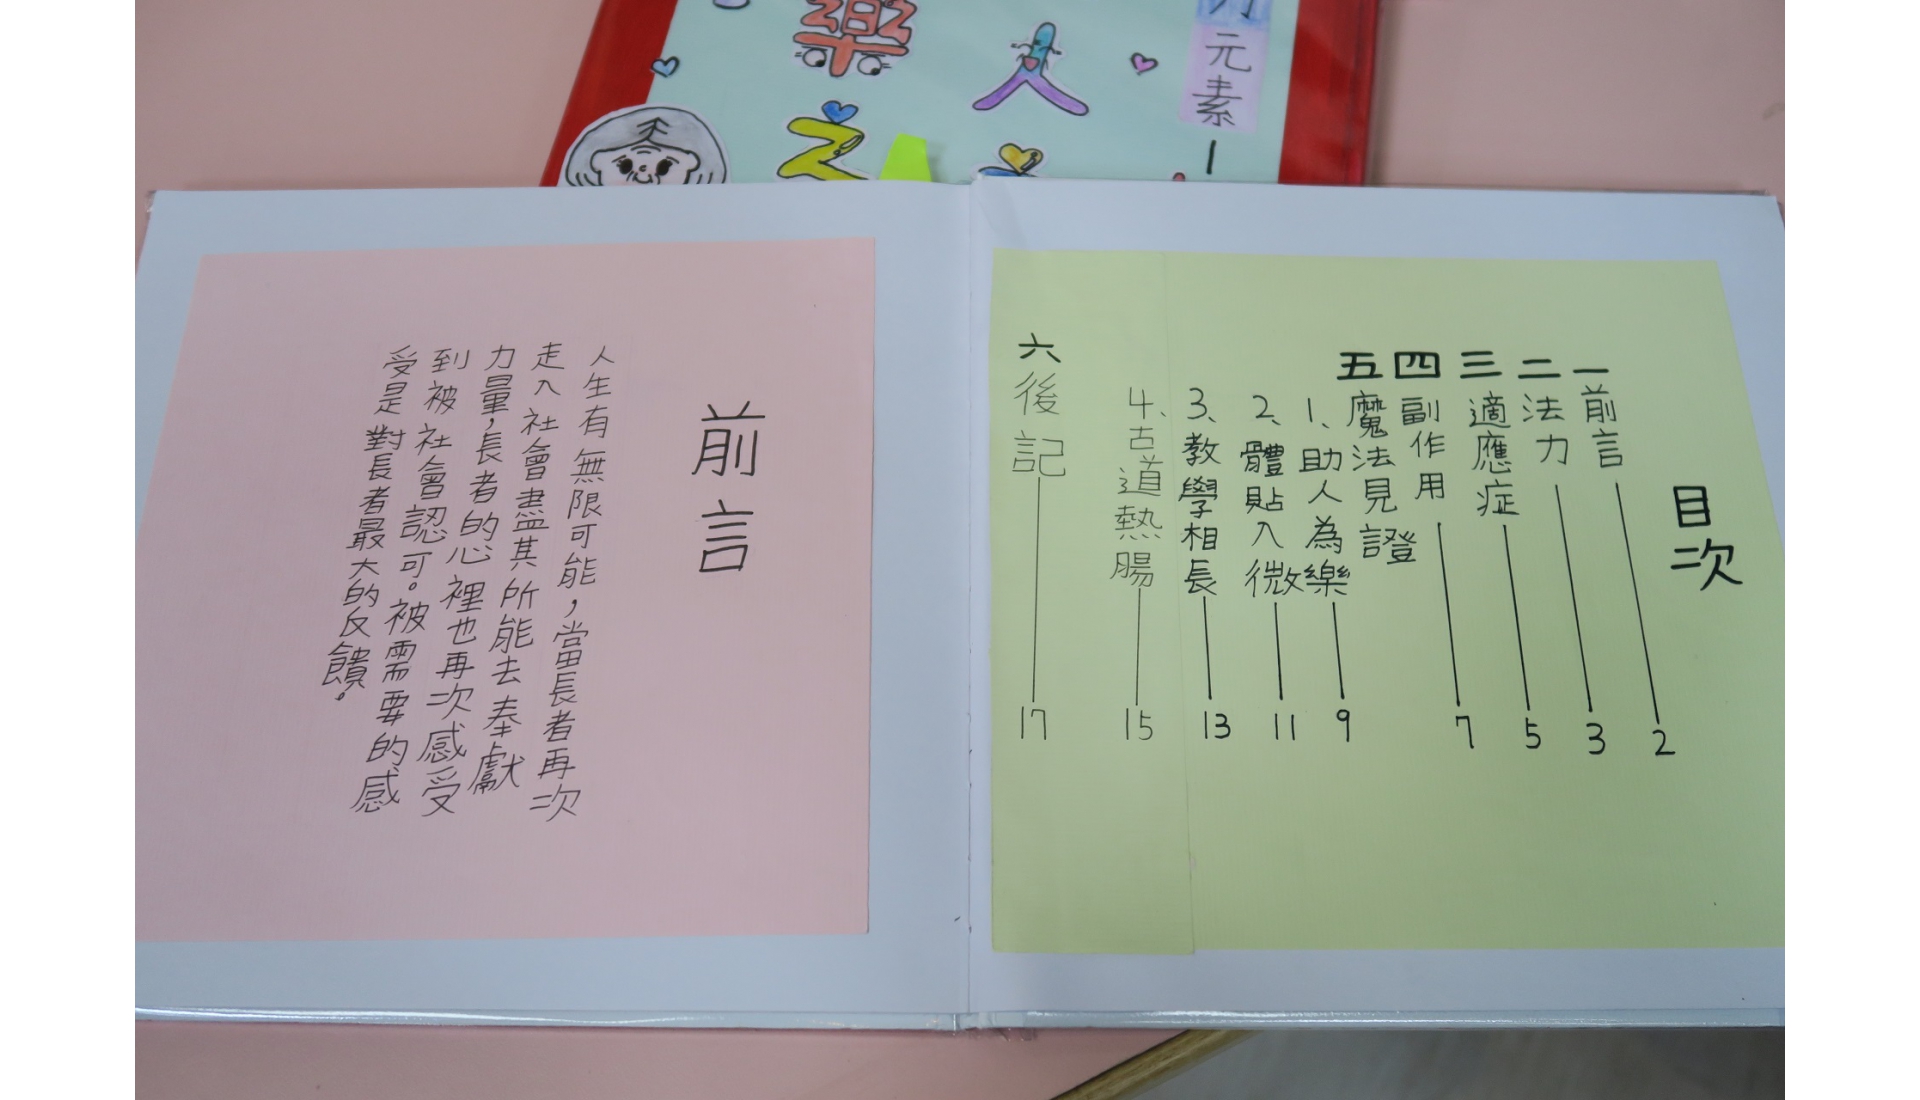 樂
人
之
元素
目次
一 前言 2
二 法力 3
三 適應症 5
四 副作用 7
五 魔法見證
1、助人為樂 9
2、體貼入微 11
3、教學相長 13
4、古道熱腸 15
六 後記 17
前言
人生有無限可能，當長者再次
走入社會盡其所能去奉獻
力量，長者的心裡也再次感受
到被社會認可。被需要的感
受是對長者最大的反饋。